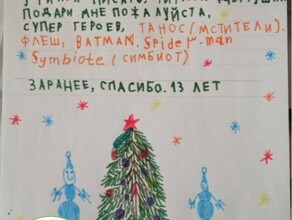 ПОДАРИ МНЕ ПОЖАЛУЙСТА,
СУПЕР ГЕРОЕВ, ТАНОС (МСТИТЕЛИ).
ФЛЕШ, BATMAN, Spider-man
Symbiote (СИМБИОТ)
ЗАРАНЕЕ, СПАСИБО. 13 ЛЕТ